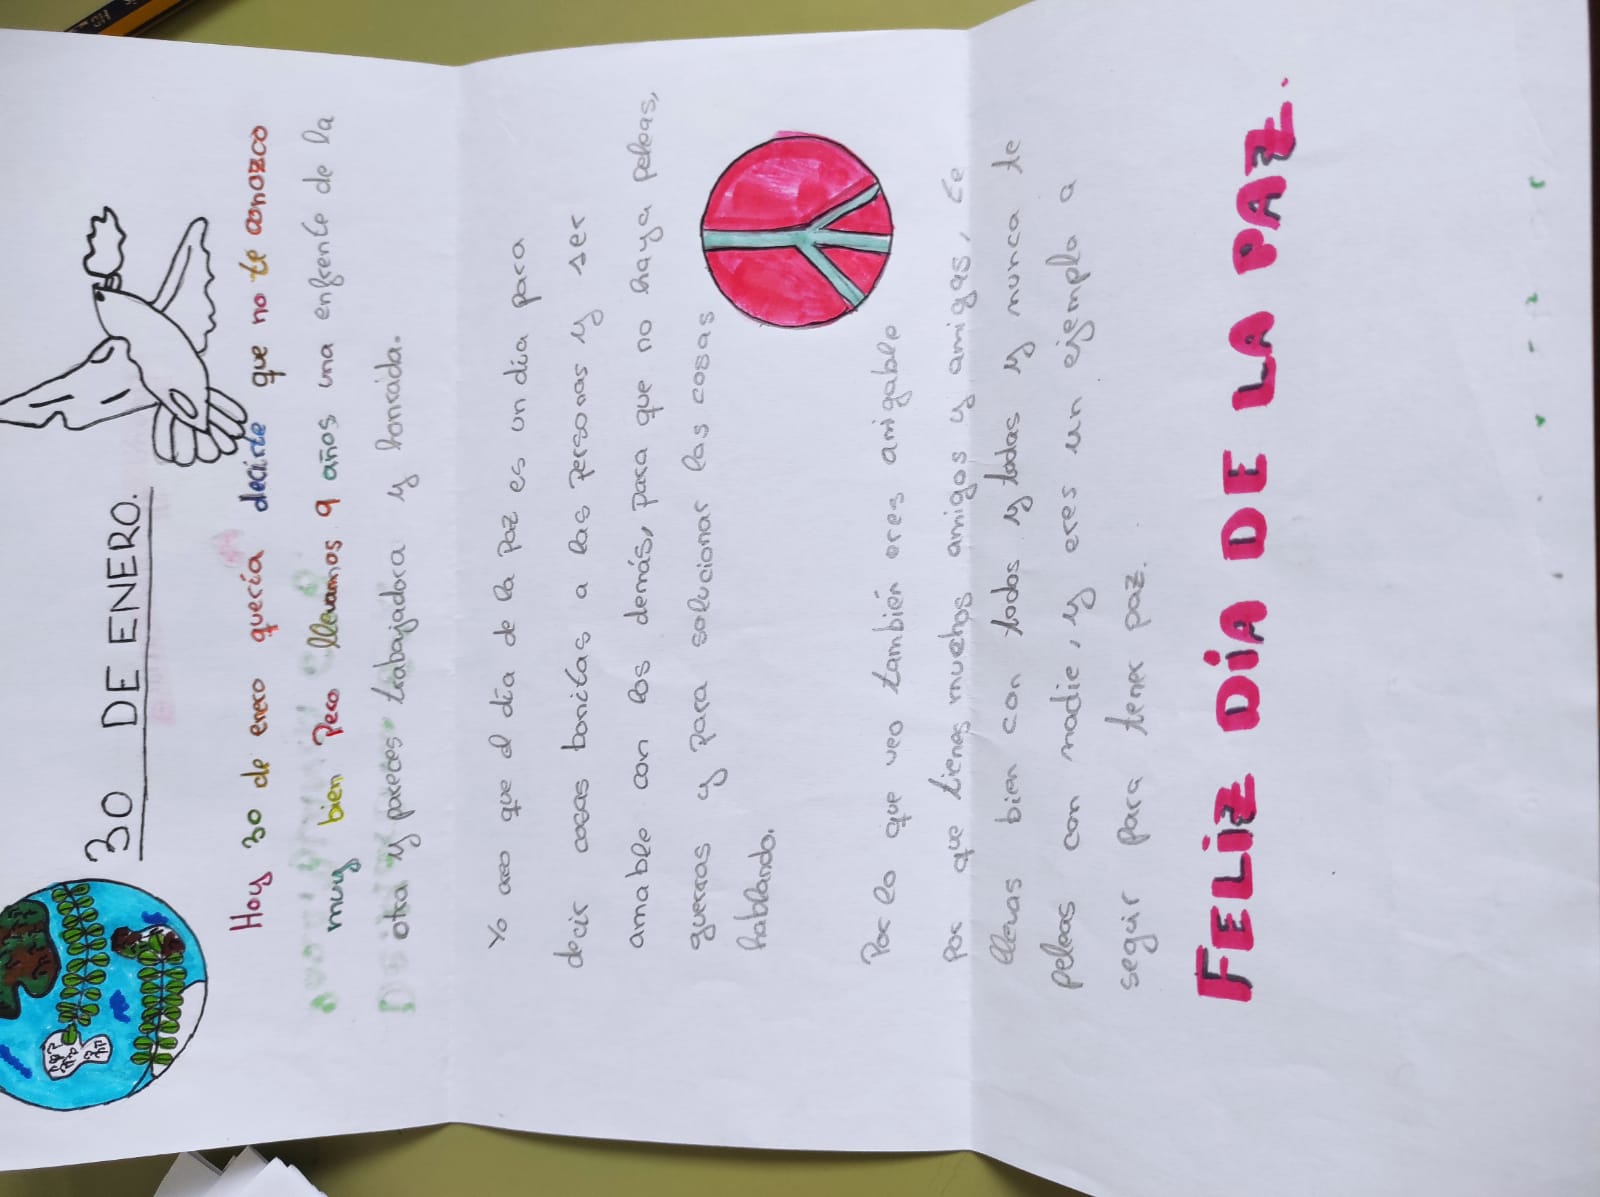 30 DE ENERO.
Hoy 30 de enero quería decirte que no te conozco
muy bien Pero llevamos 9 años una enfrente de la
otra y pareces trabajadora y honrada.
Yo creo que el día de la Paz es un día para
decir cosas bonitas a las personas y ser
amable con los demás, para que no haya peleas,
guerras y para solucionar las cosas
hablando.
Por lo que veo también eres amigable
Por que tienes muchos amigos y amigas, te
llevas bien con todos y todas y nunca te
peleas con nadie, y eres un ejemplo a
seguir para tener paz.
FELIZ DIA DE LA PAZ.